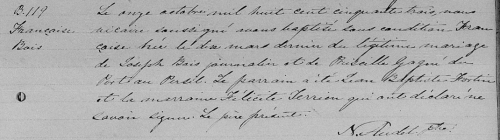 B. 119
Françoise
Bois
Le onze octobre, mil huit cent cinquante trois, nous
vicaire soussigné avons baptisé sous condition Fran-
çoise née le dix mars dernier du légitime mariage
de Joseph Bois journalier et de Priscille Gagné du
Port au Persil. Le parrain a été Jean Baptiste Fortin
et la marraine Félicité Terrien qui ont déclaré ne
savoir signer. Le père présent.
N. Ptre